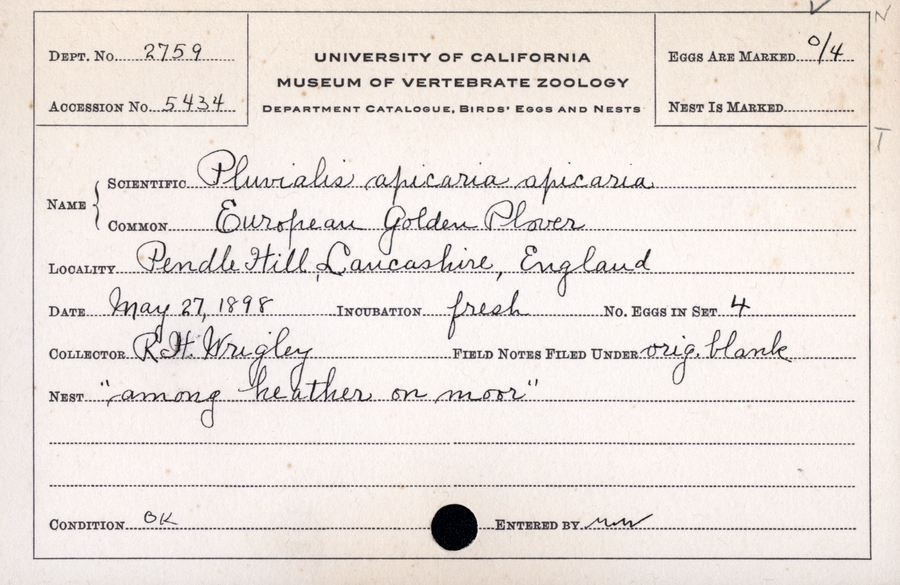 DEPT. No. 2759
UNIVERSITY OF CALIFORNIA
MUSEUM OF VERTEBRATE ZOOLOGY
DEPARTMENT CATALOGUE, BIRDS' EGGS AND NESTS
EGGS ARE MARKED 0/4
ACCESSION No. 5434
NEST IS MARKED
N
T
NAME
SCIENTIFIC Pluvialis apicaria apicaria
COMMON European Golden Plover
LOCALITY Pendle Hill, Lancashire, England
DATE May 27, 1898 INCUBATION fresh NO. EGGS IN SET 4
COLLECTOR R.H. Wrigley FIELD NOTES FILED UNDER orig. blank
NEST "among heather on moor"
CONDITION OK ENTERED BY